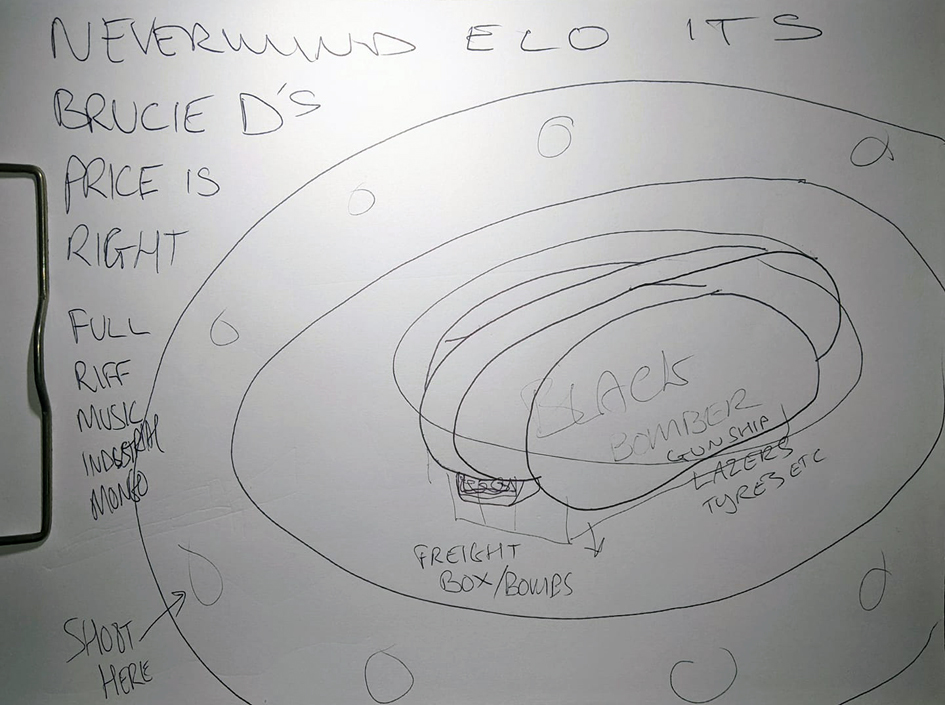 NEVERMIND ELO ITS
BRUCIE D'S
PRICE IS
RIGHT
FULL
RIFF
MUSIC
INDUSTRIAL
BLACK
BOMBER
GUNSHIP
LAZERS
TYRES ETC
FREIGHT
BOX/BOMBS
SHOOT
HERE